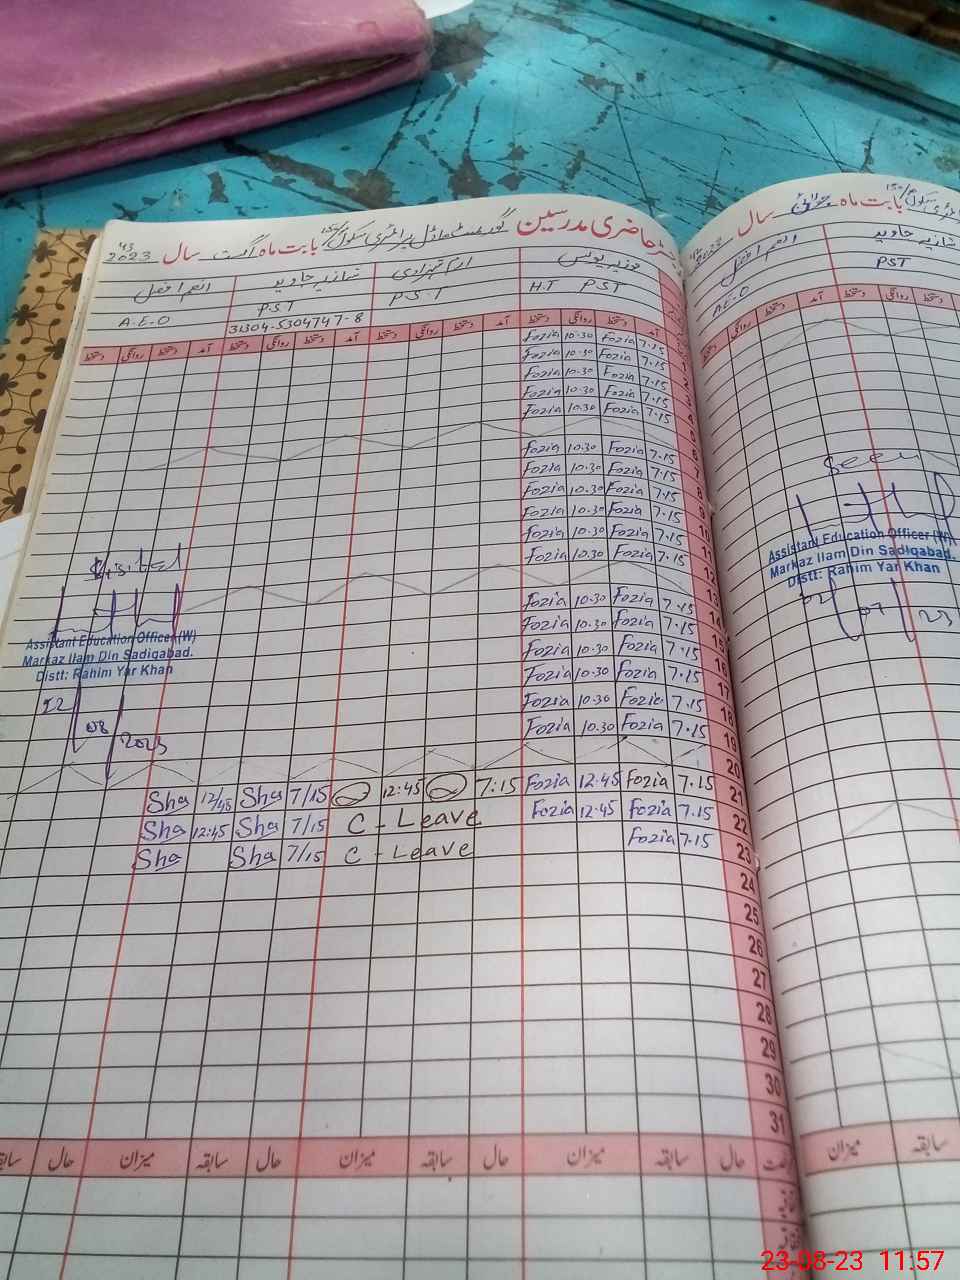 حاضری مدرسین گورنمنٹ ماڈل پرائمری سکول 150/P بابت ماہ اگست سال 2023
فوزیہ یونس ارم شہزادی شازیہ جاوید انعم افضل
H.T PST P.S.T P.S.T A.E.O
31304-5304747-8
آمد دستخط روانگی دستخط آمد دستخط روانگی دستخط آمد دستخط روانگی دستخط آمد دستخط روانگی دستخط
Fozia 10.30 Fozia 7.15 1
Fozia 10.30 Fozia 7.15 2
Fozia 10.30 Fozia 7.15 3
Fozia 10.30 Fozia 7.15 4
Fozia 10.30 Fozia 7.15 5
6
Fozia 10.30 Fozia 7.15 7
Fozia 10.30 Fozia 7.15 8
Fozia 10.30 Fozia 7.15 9
Fozia 10.30 Fozia 7.15 10
Fozia 10.30 Fozia 7.15 11
Fozia 10.30 Fozia 7.15 12
13
Fozia 10.30 Fozia 7.15 14
Fozia 10.30 Fozia 7.15 15
Fozia 10.30 Fozia 7.15 16
Fozia 10.30 Fozia 7.15 17
Fozia 10.30 Fozia 7.15 18
Fozia 10.30 Fozia 7.15 19
20
Sha 12/45 Sha 7/15 12:45 7:15 Fozia 12:45 Fozia 7.15 21
Sha 12:45 Sha 7/15 C - Leave Fozia 12:45 Fozia 7.15 22
Sha Sha 7/15 C - Leave Fozia 7.15 23
24
25
26
27
28
29
30
31
حال سابقہ میزان حال سابقہ میزان حال سابقہ میزان حال
Visited
Assistant Education Officer (W)
Markaz Ilam Din Sadiqabad.
Distt: Rahim Yar Khan
22
08
2023
بابت ماہ جولائی سال 2023
شازیہ جاوید انعم افضل
PST A.E.O
روانگی دستخط آمد دستخط روانگی دستخط
Seen
Assistant Education Officer (W)
Markaz Ilam Din Sadiqabad.
Distt: Rahim Yar Khan
07 23
سابقہ میزان
23-08-23 11:57